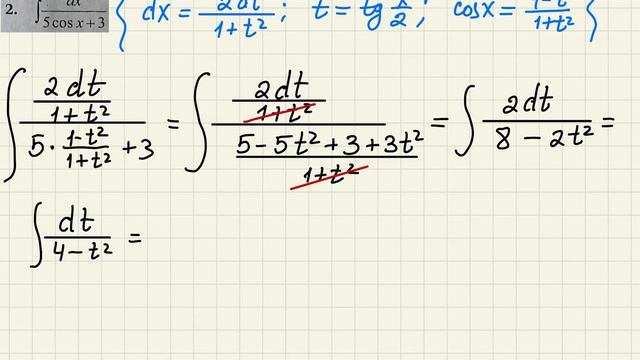 2. ∫ dx/(5 cos x + 3) { dx = 2dt/(1+t²); t = tg x/2; cos x = (1-t²)/(1+t²) }
∫ (2dt/(1+t²))/(5·(1-t²)/(1+t²) + 3) = ∫ (2dt/(1+t²))/((5-5t²+3+3t²)/(1+t²)) = ∫ 2dt/(8-2t²) =
∫ dt/(4-t²) =